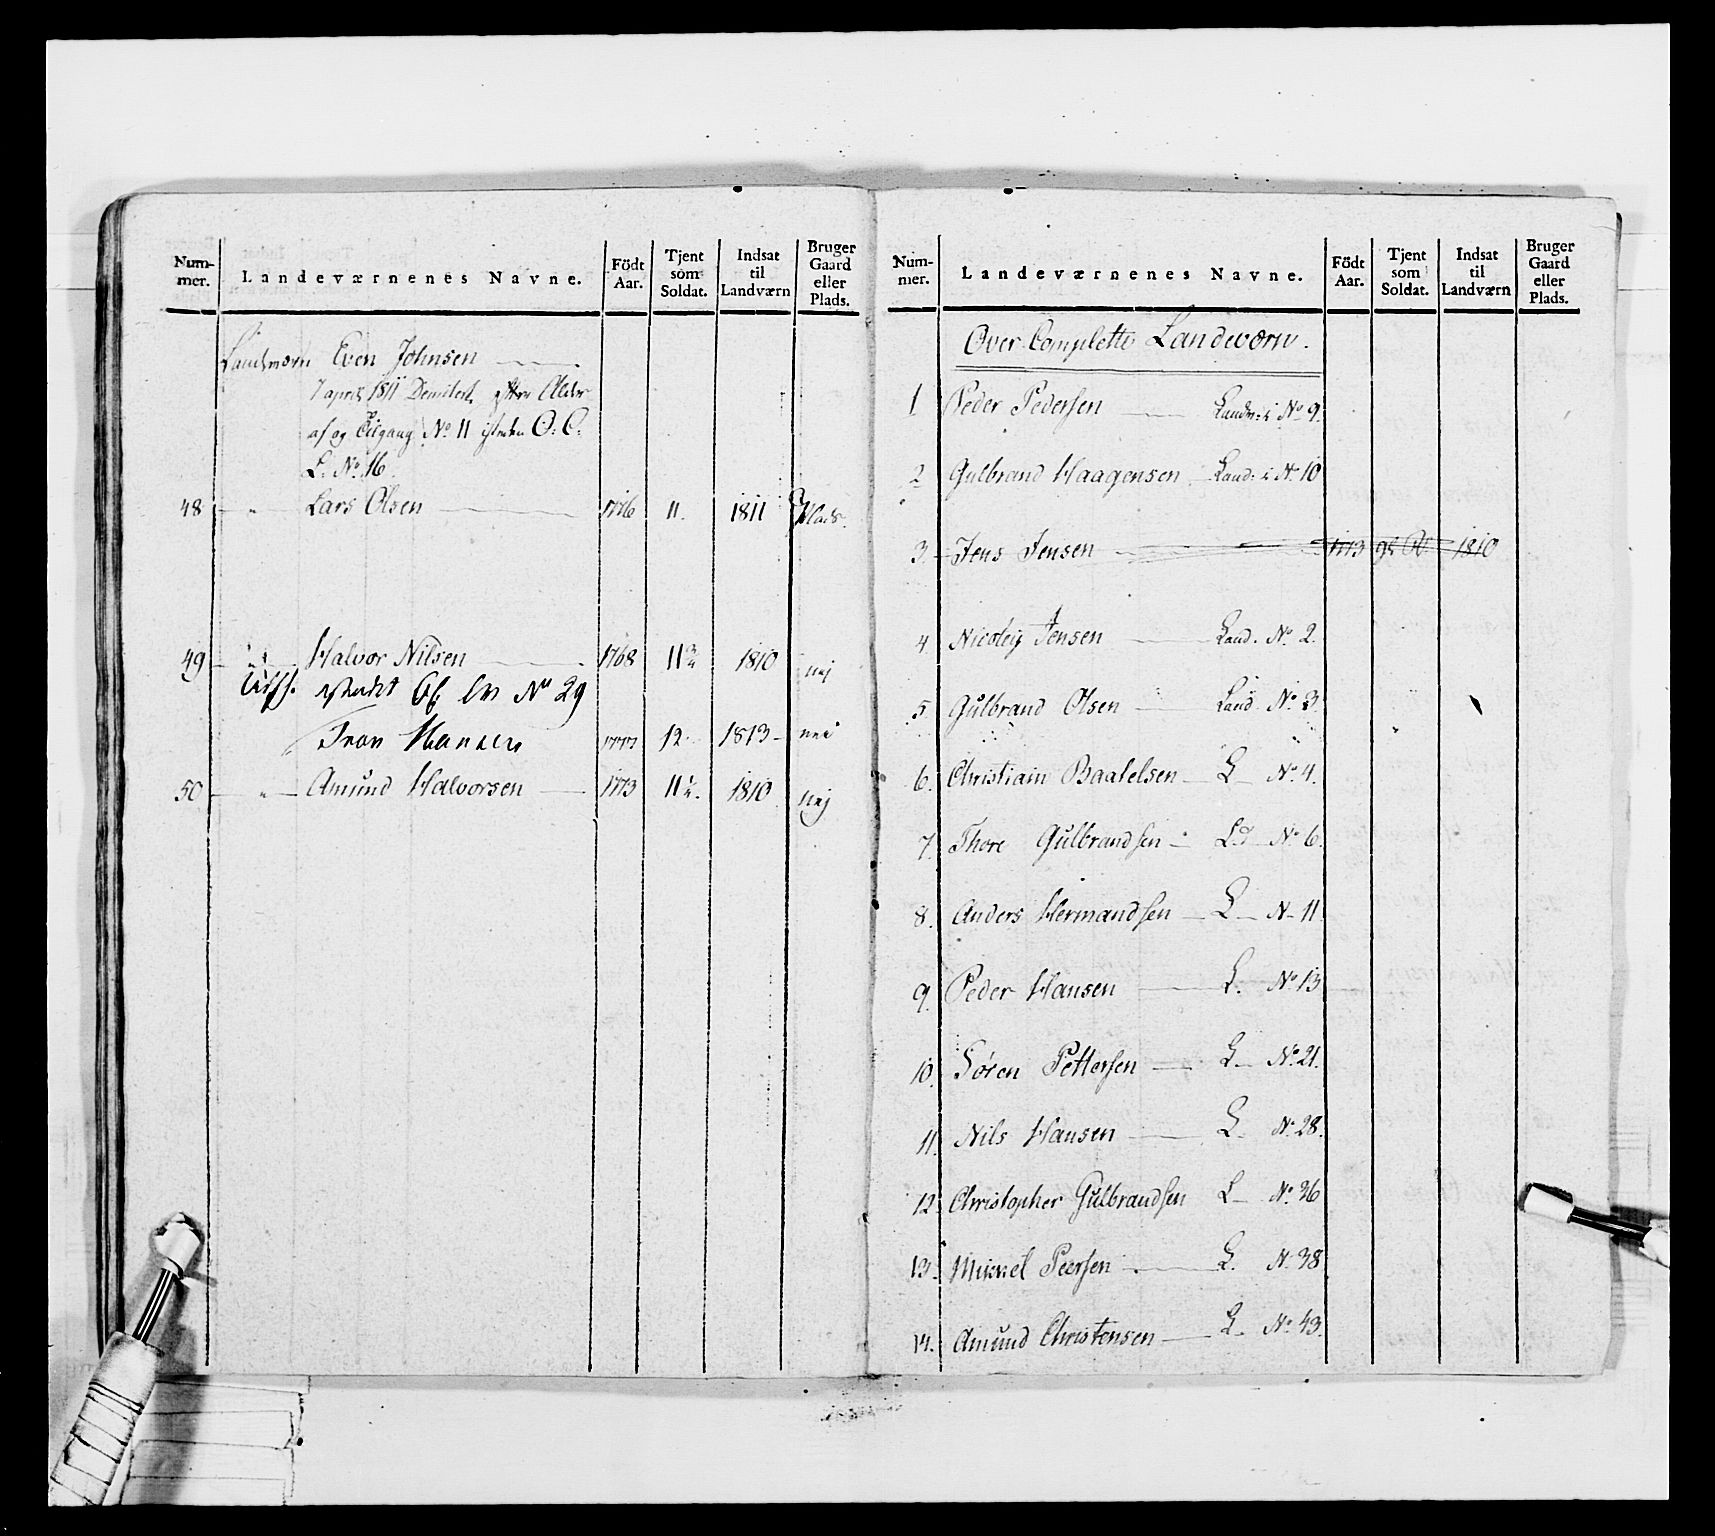 Num-
mer.
Landeværnenes Navne.
Födt
Aar.
Tjent
som
Soldat.
Indsat
til
Landværn
Bruger
Gaard
eller
Plads.
Landværn Even Johnsen
7 april 1811 Demitert
af og Tilgang No 11 O: C:
L: No 16.
48 " Lars Olsen 1776 11. 1811 Plads.
49 " Halvor Nilsen 1768 11 1810 nej
No 29
Tron Hansen 1777 12. 1813 - nei
50 " Amund Halvorsen 1773 11 1/2. 1810 nej
Num-
mer.
Landeværnenes Navne.
Födt
Aar.
Tjent
som
Soldat.
Indsat
til
Landværn
Bruger
Gaard
eller
Plads.
Over Complette Landeværn.
1 Peder Pedersen Landv: i No 9.
2 Gulbrand Haagensen Land: i No 10
3 Jens Jensen 1773 1810
4 Nicolay Jensen Land. No 2.
5 Gulbrand Olsen Land No 3
6. Christiain Baalelsen L No 4.
7. Thore Gulbrandsen Ld No 6.
8. Anders Hermandsen L N 11
9. Peder Hansen L. No 13
10. Sören Pettersen L No 21.
11. Nils Hansen L. No 28.
12. Christopher Gulbrandsen L No 36
13. Mikkel Peersen L. N. 38
14. Amund Christensen L. No 43.